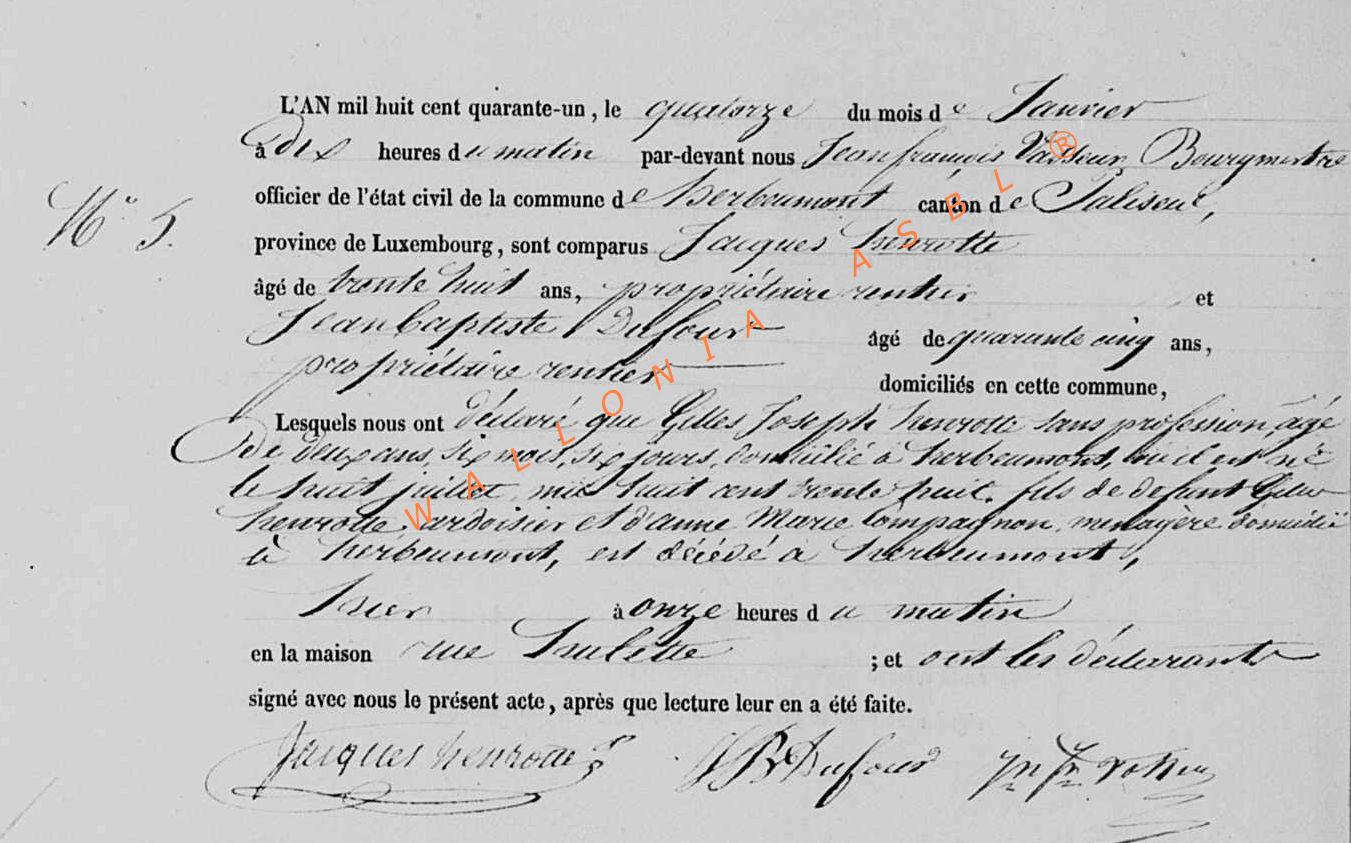 L'AN mil huit cent quarante-un, le quatorze du mois de Janvier
à dix heures du matin par-devant nous Jean françois Bourgmestre
N° 5.
officier de l'état civil de la commune de herbeumont canton de Paliseul,
province de Luxembourg, sont comparus Jacques henrotte
âgé de trente huit ans, propriétaire rentier et
Jean baptiste Dufour âgé de quarante cinq ans,
propriétaire rentier domiciliés en cette commune,
Lesquels nous ont déclaré que Gilles Joseph henrotte sans profession, agé
de deux ans, six mois, six jours, domicilié à herbeumont, où il est né
le huit juillet mil huit cent trente huit. fils de defunt Gilles
henrotte, ardoisier et d'anne Marie Compagnon, menagère domicilié
à herbeumont, est décédé à herbeumont,
hier à onze heures du matin
en la maison rue ; et ont les déclarants
signé avec nous le présent acte, après que lecture leur en a été faite.
Jacques henrotte JB Dufour
WALLONIA ASBL ®